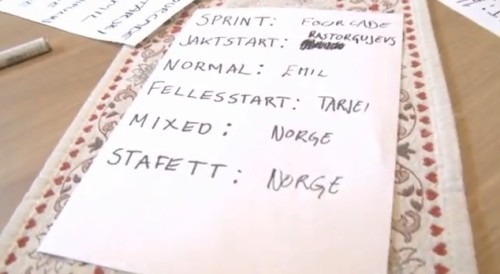 SPRINT: FOURCADE
JAKTSTART: RASTORGUJEVS
NORMAL: EMIL
FELLESSTART: TARJEI
MIXED: NORGE
STAFETT: NORGE